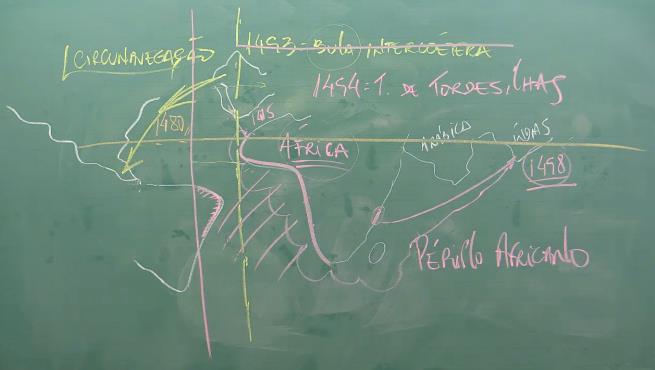 CIRCUNAVEGAÇÃO
1493 = BULA INTERCOETERA
1494 = T. DE TORDESILHAS
1480
ÁFRICA
ÍNDIAS
1498
PÉRIPLO AFRICANO